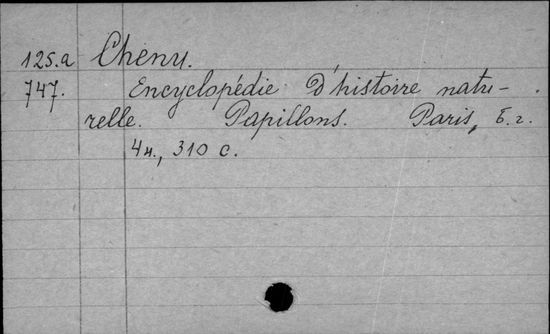 125.a Chenu.
747. Encyclopédie d'histoire natu-
relle. Papillons. Paris, б.г.
4н., 310 с.